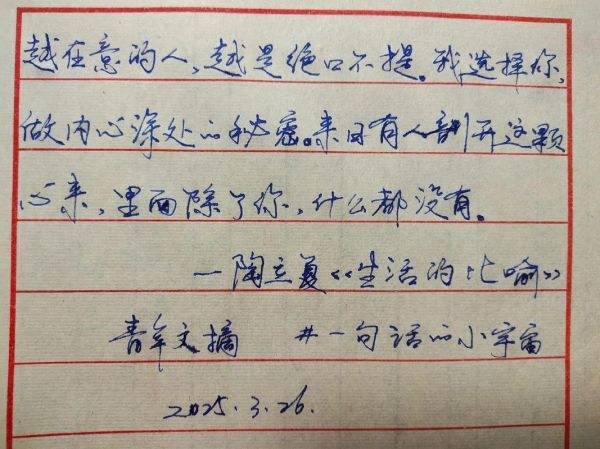 越在意的人,越是绝口不提。我选择你,
做内心深处的秘密。来日有人剖开这颗
心来,里面除了你,什么都没有。
—陶立夏《生活的比喻》
青年文摘 #一句话的小宇宙
2025.3.26.